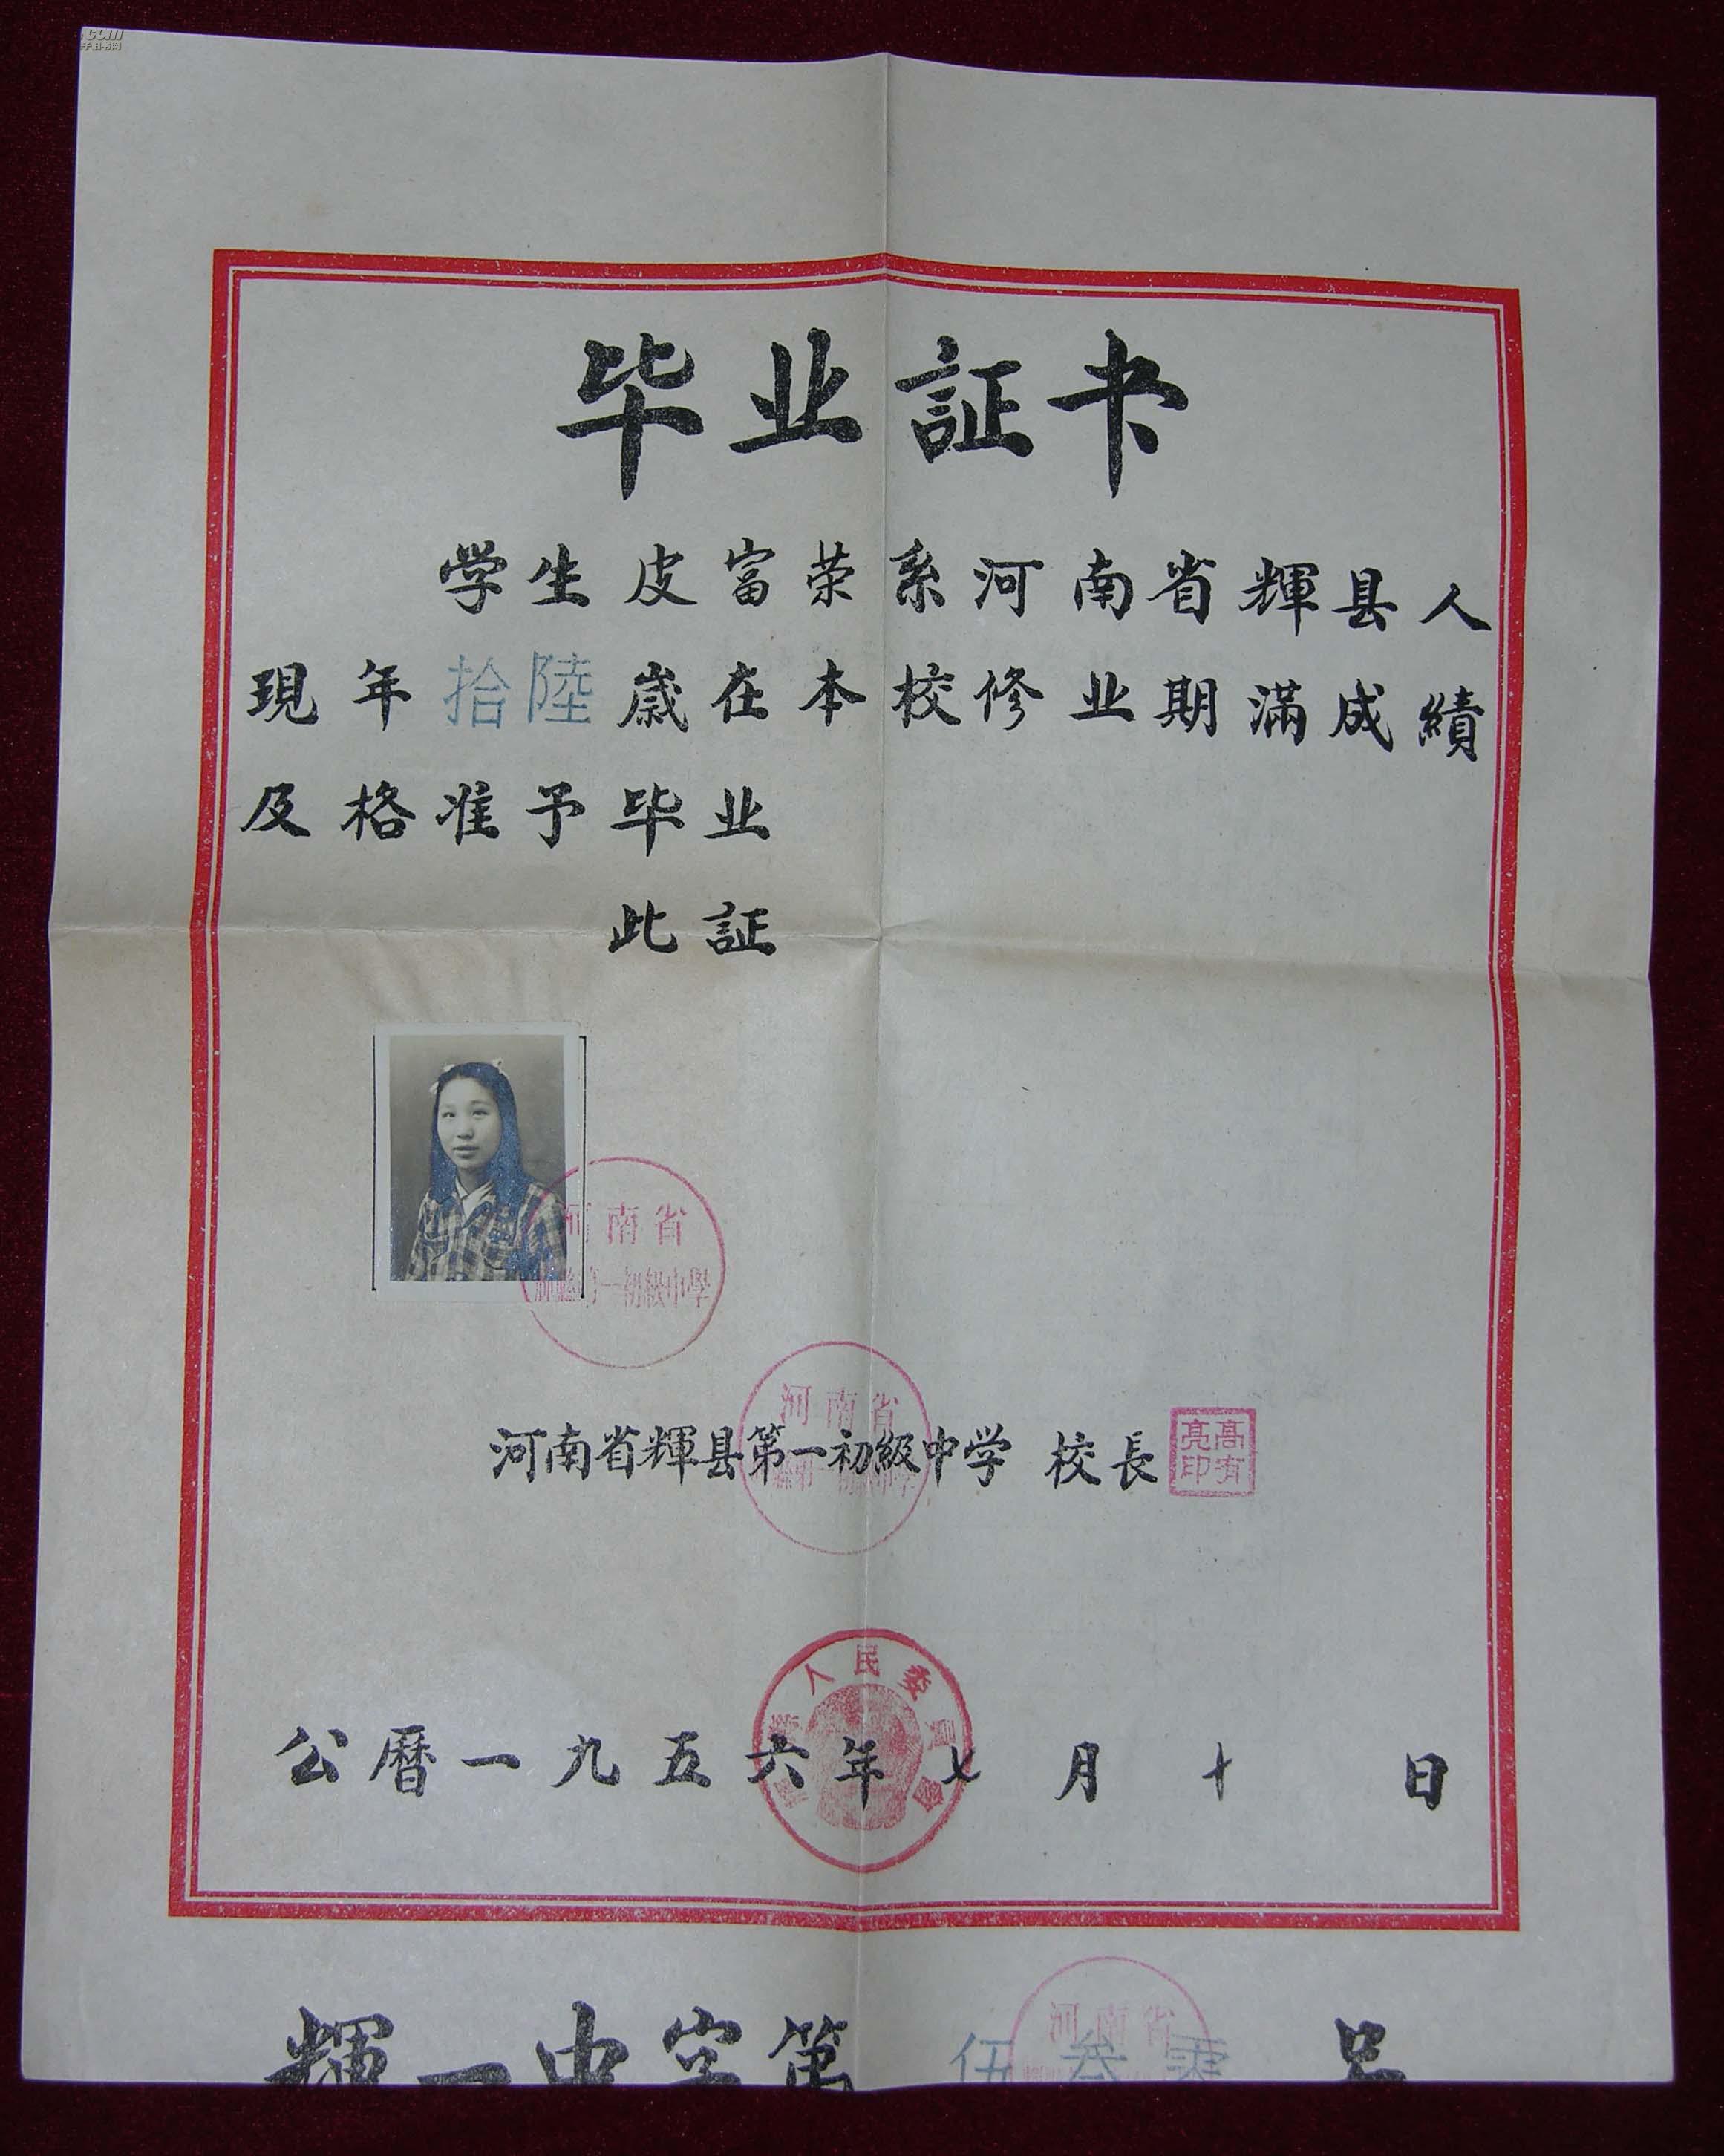 .com
毕业証书
学生皮富荣系河南省輝县人
現年拾陸歲在本校修业期滿成績
及格准予毕业
此証
河南省
第一初級中學
河南省
河南省輝县第一初級中学 校長
高有亮印
人民委員會
公曆一九五六年七月十日
河南省
輝一中字第伍叁零号